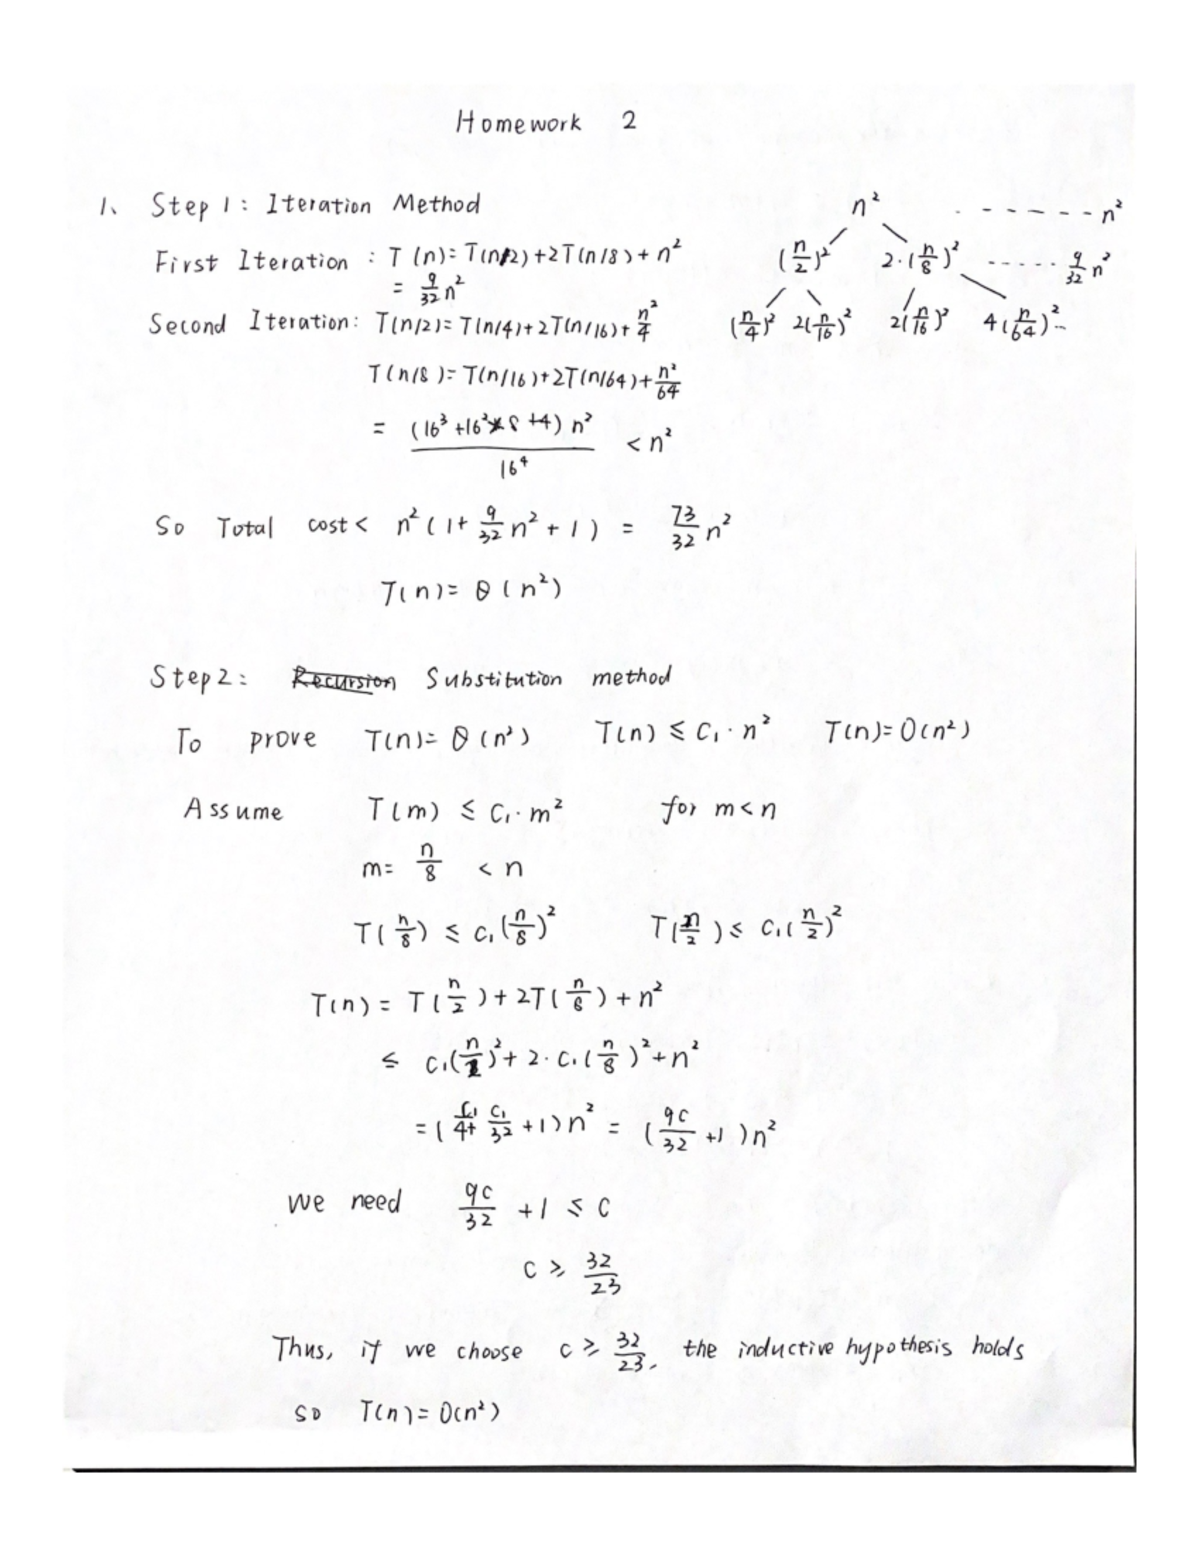 Homework 2
1、 Step 1: Iteration Method
n² - - - - - - n²
First Iteration : T(n)= T(n/2)+2T(n/8)+n²
(n/2)² 2·(n/8)² - - - - - 9/32 n²
= 9/32 n²
Second Iteration: T(n/2)= T(n/4)+2T(n/16)+ n²/4
(n/4)² 2(n/16)² 2(n/16)² 4(n/64)² --
T(n/8)= T(n/16)+2T(n/64)+ n²/64
= (16³+16²*8+4) n² / 16⁴ < n²
So Total cost < n²(1+ 9/32 n² + 1) = 73/32 n²
T(n)= θ(n²)
Step2: Recursion Substitution method
To prove T(n)= θ(n²) T(n) ≤ C₁·n² T(n)= O(n²)
Assume T(m) ≤ C₁·m² for m<n
m= n/8 < n
T(n/8) ≤ C₁(n/8)² T(n/2) ≤ C₁(n/2)²
T(n) = T(n/2)+2T(n/8)+n²
≤ C₁(n/2)²+2·C₁(n/8)²+n²
=(C₁/4+ C₁/32 +1)n² = (9C/32 +1)n²
We need 9C/32 +1 ≤ C
C ≥ 32/23
Thus, if we choose C ≥ 32/23, the inductive hypothesis holds
so T(n)= O(n²)